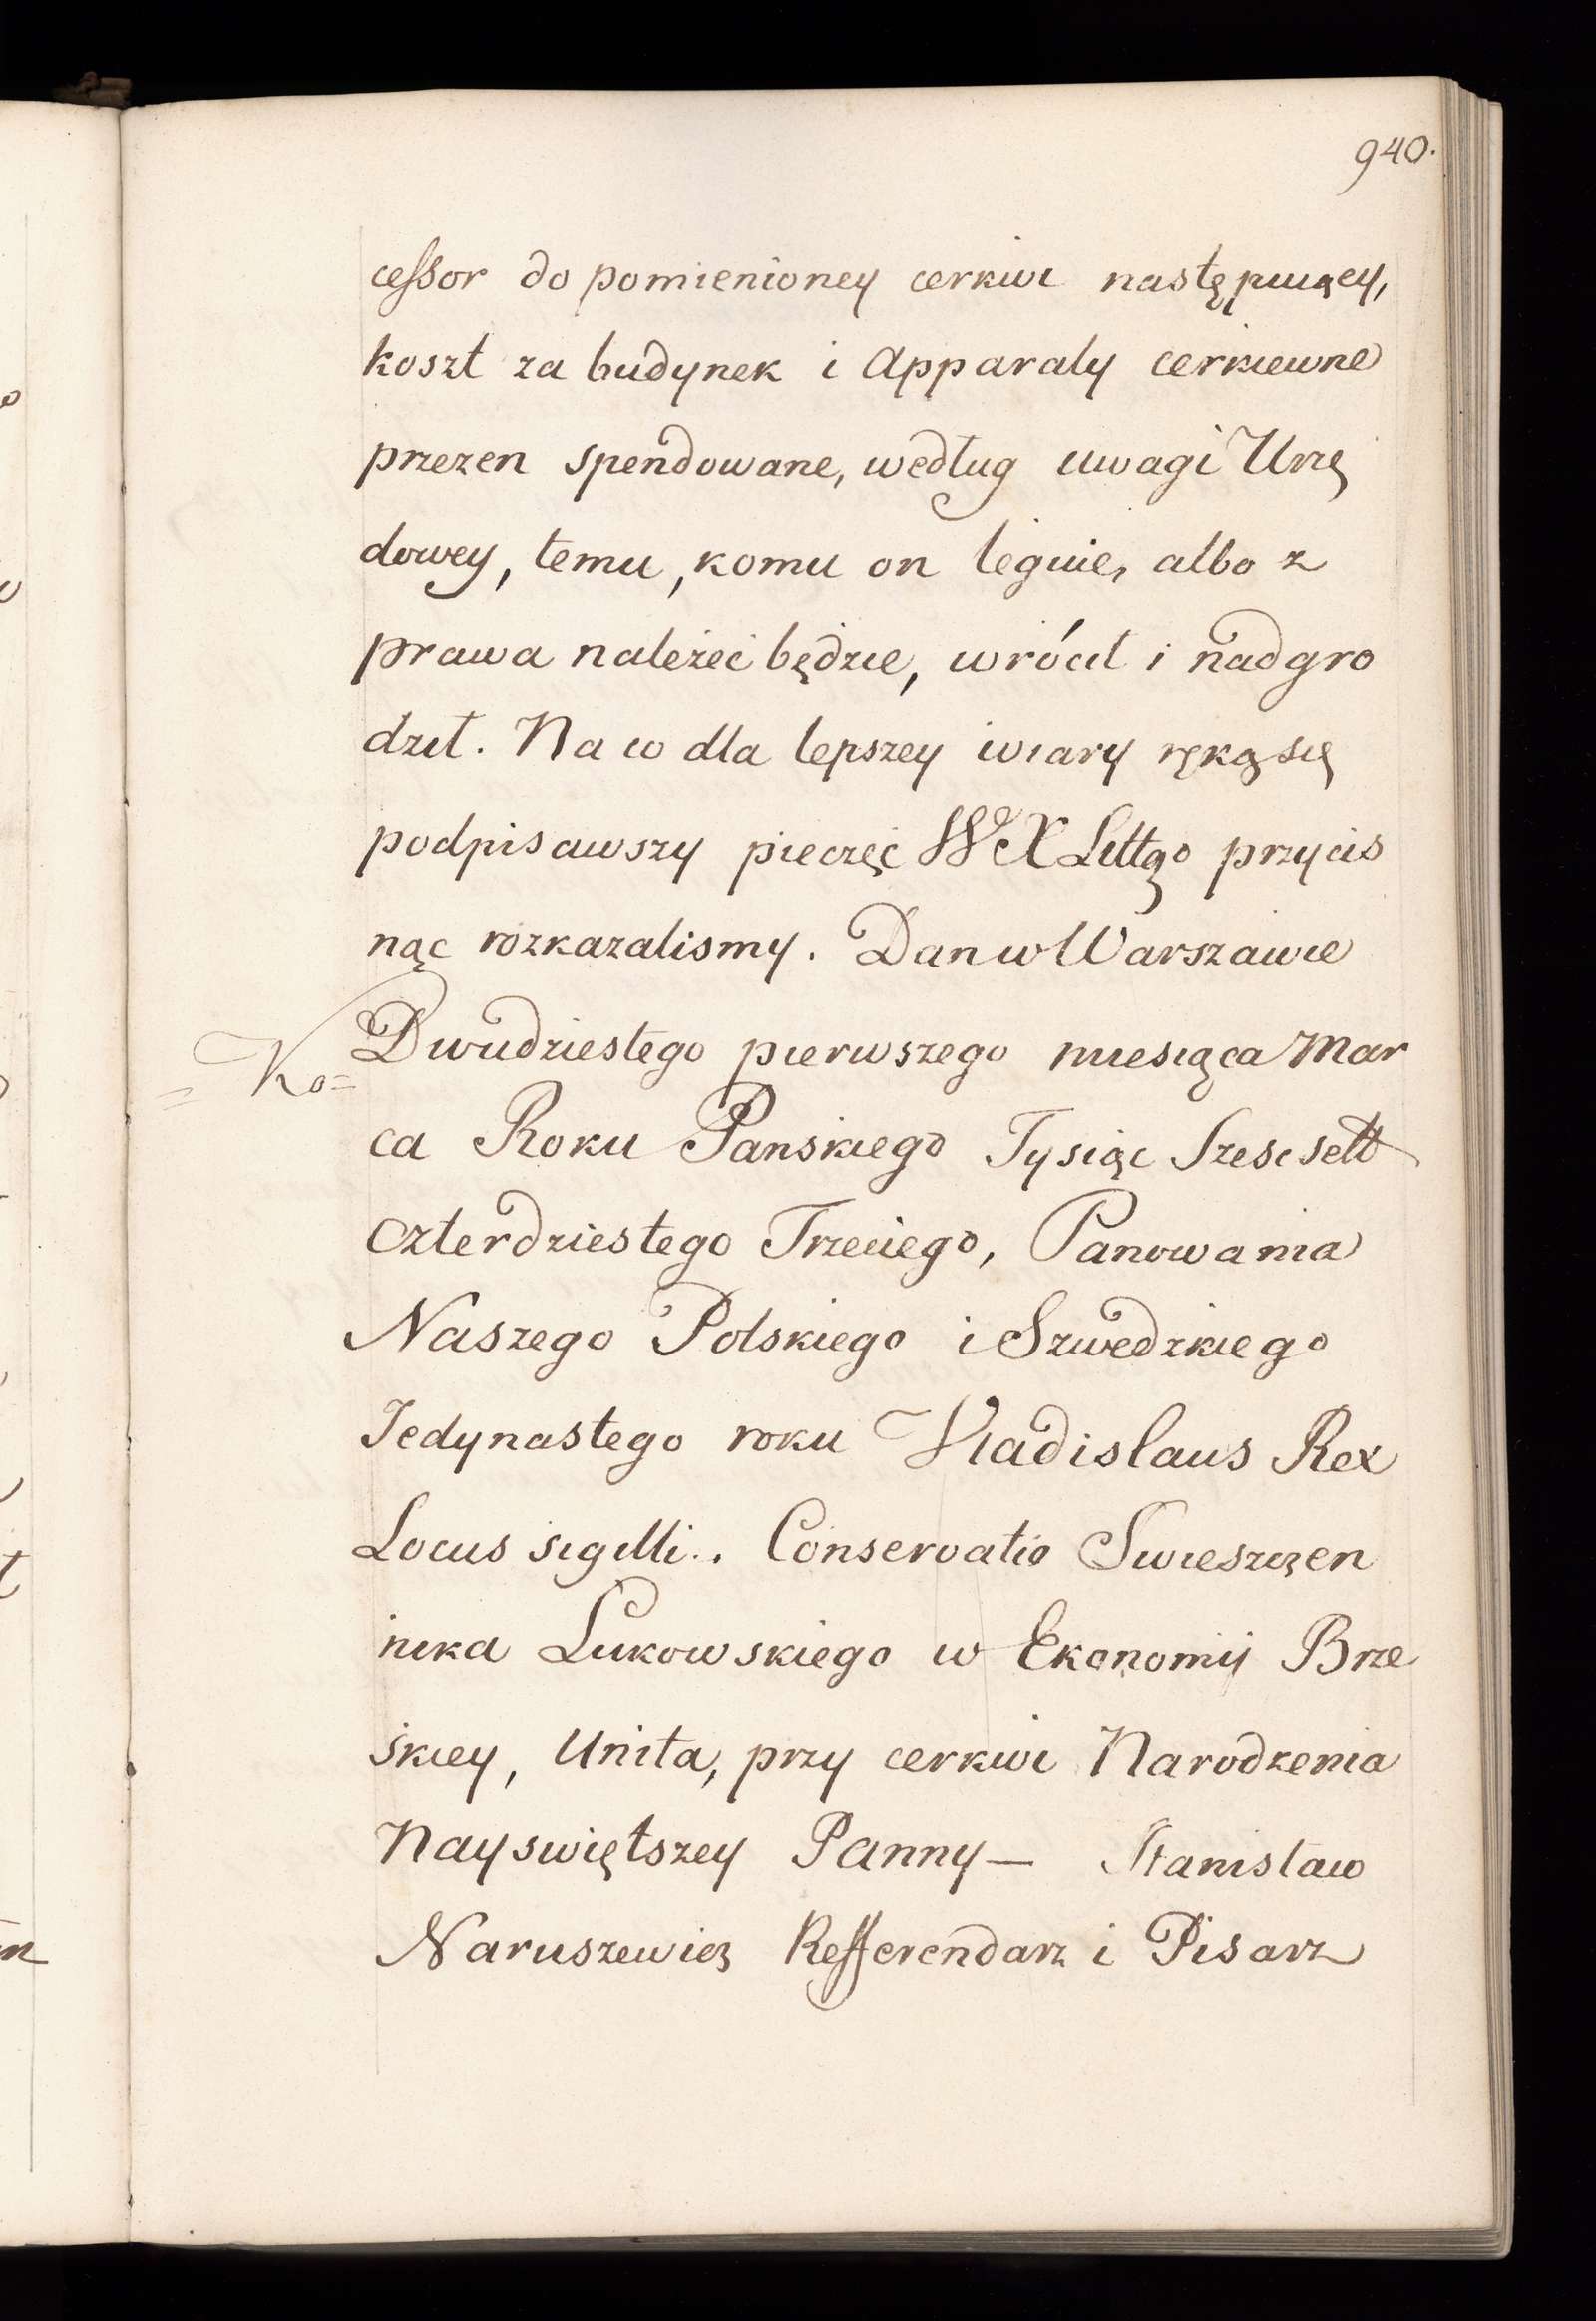 940.
cessor do pomienioney cerkwi następuiący,
koszt za budynek i Apparaty cerkiewne
przezen spendowane, według uwagi Urzę
dowey, temu, komu on leguie, albo z
prawa należeć będzie, wrócił i nadgro
dził. Na co dla lepszey wiary ręką się
podpisawszy pieczęć W X Littgo przycis
nąc rozkazalismy. Dan w Warszawie
Dwudziestego pierwszego miesiąca Mar
= Ko=
ca Roku Panskiego Tysiąc Szescsett
Czterdziestego Trzeciego, Panowania
Naszego Polskiego i Szwedzkiego
Jedynastego roku Vladislaus Rex
Locus sigilli.. Conservatio Swieszczen
nika Lukowskiego w Ekonomij Brze
skiey, Unita, przy cerkwi Narodzenia
Nayswiętszey Panny — Stanisław
Naruszewicz Refferendarz i Pisarz